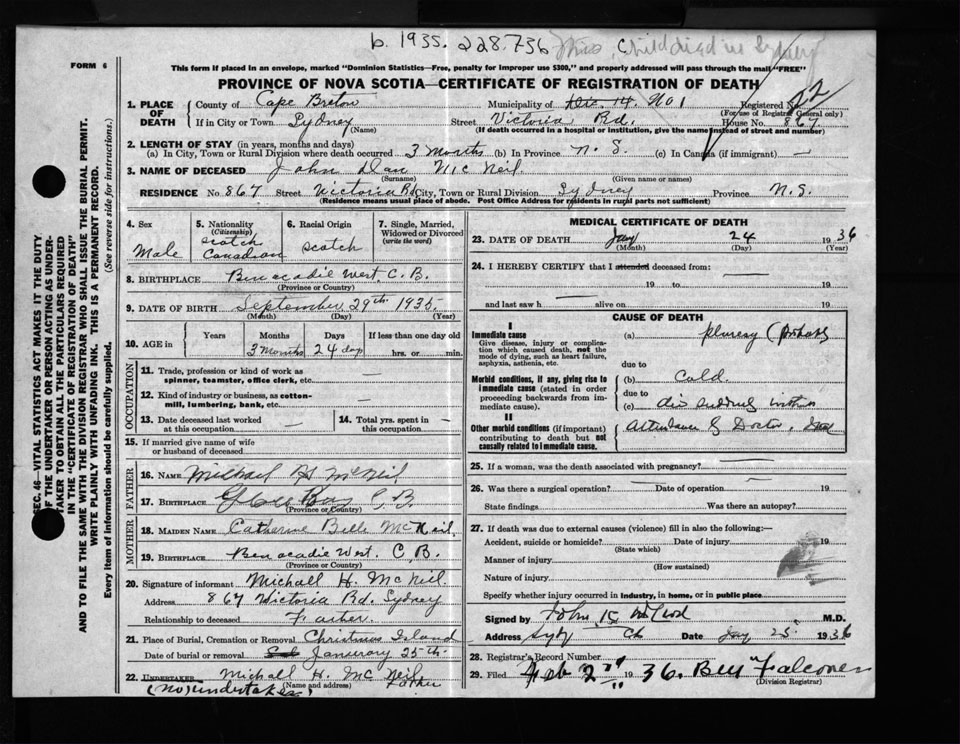 b. 1935. 228.736 This Child died in Sydney
FORM 6
This form if placed in an envelope, marked "Dominion Statistics—Free, penalty for improper use $300," and properly addressed will pass through the mail "FREE"
PROVINCE OF NOVA SCOTIA—CERTIFICATE OF REGISTRATION OF DEATH
1. PLACE OF DEATH County of Cape Breton Municipality of Dis. 14. No 1 Registered No. 22
(For use of Registrar General only)
If in City or Town Sydney (Name) Street Victoria Rd. House No. 867
(If death occurred in a hospital or institution, give the name instead of street and number)
2. LENGTH OF STAY (in years, months and days)
(a) In City, Town or Rural Division where death occurred 3 months (b) In Province N. S. (c) In Canada (if immigrant) —
3. NAME OF DECEASED John Dan Mc Neil.
(Surname) (Given name or names)
RESIDENCE No 867 Street Victoria Rd City, Town or Rural Division Sydney Province N.S.
(Residence means usual place of abode. Post Office Address for residents in rural parts not sufficient)
4. Sex Male
5. Nationality (Citizenship) Scotch Canadian
6. Racial Origin Scotch
7. Single, Married, Widowed or Divorced (write the word)
8. BIRTHPLACE Benacadie West C. B.
(Province or Country)
9. DATE OF BIRTH September 29th 1935.
(Month) (Day) (Year)
10. AGE in Years Months 3 Months Days 24 days If less than one day old hrs. or min.
OCCUPATION
11. Trade, profession or kind of work as spinner, teamster, office clerk, etc. —
12. Kind of industry or business, as cotton-mill, lumbering, bank, etc. —
13. Date deceased last worked at this occupation —
14. Total yrs. spent in this occupation —
15. If married give name of wife or husband of deceased
FATHER
16. NAME Michael H. McNeil
17. BIRTHPLACE Glace Bay C B.
(Province or Country)
MOTHER
18. MAIDEN NAME Catherine Belle McNeil,
19. BIRTHPLACE Benacadie West. C. B.
(Province or Country)
20. Signature of informant Michall H. McNeil.
Address 867 Victoria Rd. Sydney
Relationship to deceased Father.
21. Place of Burial, Cremation or Removal Christmas Island
Date of burial or removal Janurary 25th
22. UNDERTAKER Michall H. Mc Neil
(Name and address) Father
(no) undertaker)
MEDICAL CERTIFICATE OF DEATH
23. DATE OF DEATH Jany 24 1936
(Month) (Day) (Year)
24. I HEREBY CERTIFY that I attended deceased from: —
19 to 19
and last saw h alive on 19
CAUSE OF DEATH
I
Immediate cause
Give disease, injury or complication which caused death, not the mode of dying, such as heart failure, asphyxia, asthenia, etc.
(a) pleuresy (probable
due to
Morbid conditions, if any, giving rise to immediate cause (stated in order proceeding backwards from immediate cause).
(b) Cold.
due to
(c) died suddenly without
II
Other morbid conditions (if important) contributing to death but not causally related to immediate cause.
Attendance of Doctor.
25. If a woman, was the death associated with pregnancy? —
26. Was there a surgical operation? — Date of operation — 19
State findings Was there an autopsy?
27. If death was due to external causes (violence) fill in also the following:—
Accident, suicide or homicide? Date of injury 19
(State which)
Manner of injury
(How sustained)
Nature of injury
Specify whether injury occurred in industry, in home, or in public place
Signed by John K McLeod M.D.
Address Syd Date Jany 25. 1936
28. Registrar's Record Number
29. Filed Feb 2nd 1936. Falconer
(Division Registrar)
SEC. 46—VITAL STATISTICS ACT MAKES IT THE DUTY
OF THE UNDERTAKER OR PERSON ACTING AS UNDER-
TAKER TO OBTAIN ALL THE PARTICULARS REQUIRED
IN THE "CERTIFICATE OF REGISTRATION OF DEATH"
AND TO FILE THE SAME WITH THE DIVISION REGISTRAR WHO SHALL ISSUE THE BURIAL PERMIT.
WRITE PLAINLY WITH UNFADING INK. THIS IS A PERMANENT RECORD.
Every item of information should be carefully supplied. (See reverse side for instructions.)